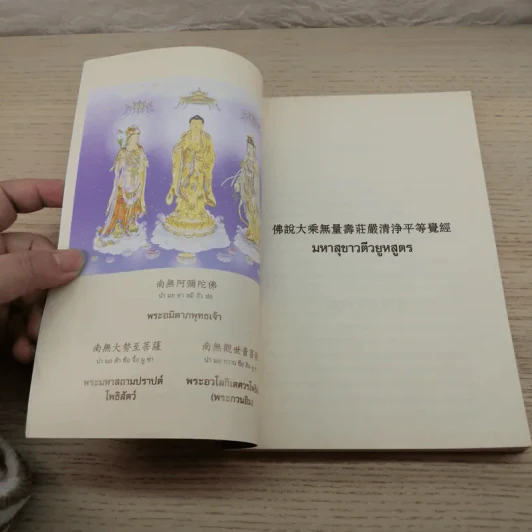 南無阿彌陀佛
นำ มอ ฮา หมี ถ่อ ฝอ
พระอมิตาภพุทธเจ้า
南無大勢至菩薩
พระมหาสถามปราปต์
โพธิสัตว์
南無觀世音菩
พระอวโลกิเตศวรโพธิ
(พระกวนอิม)
佛說大乘無量壽莊嚴清浄平等覺經
มหาสุขาวตีวยูหสูตร